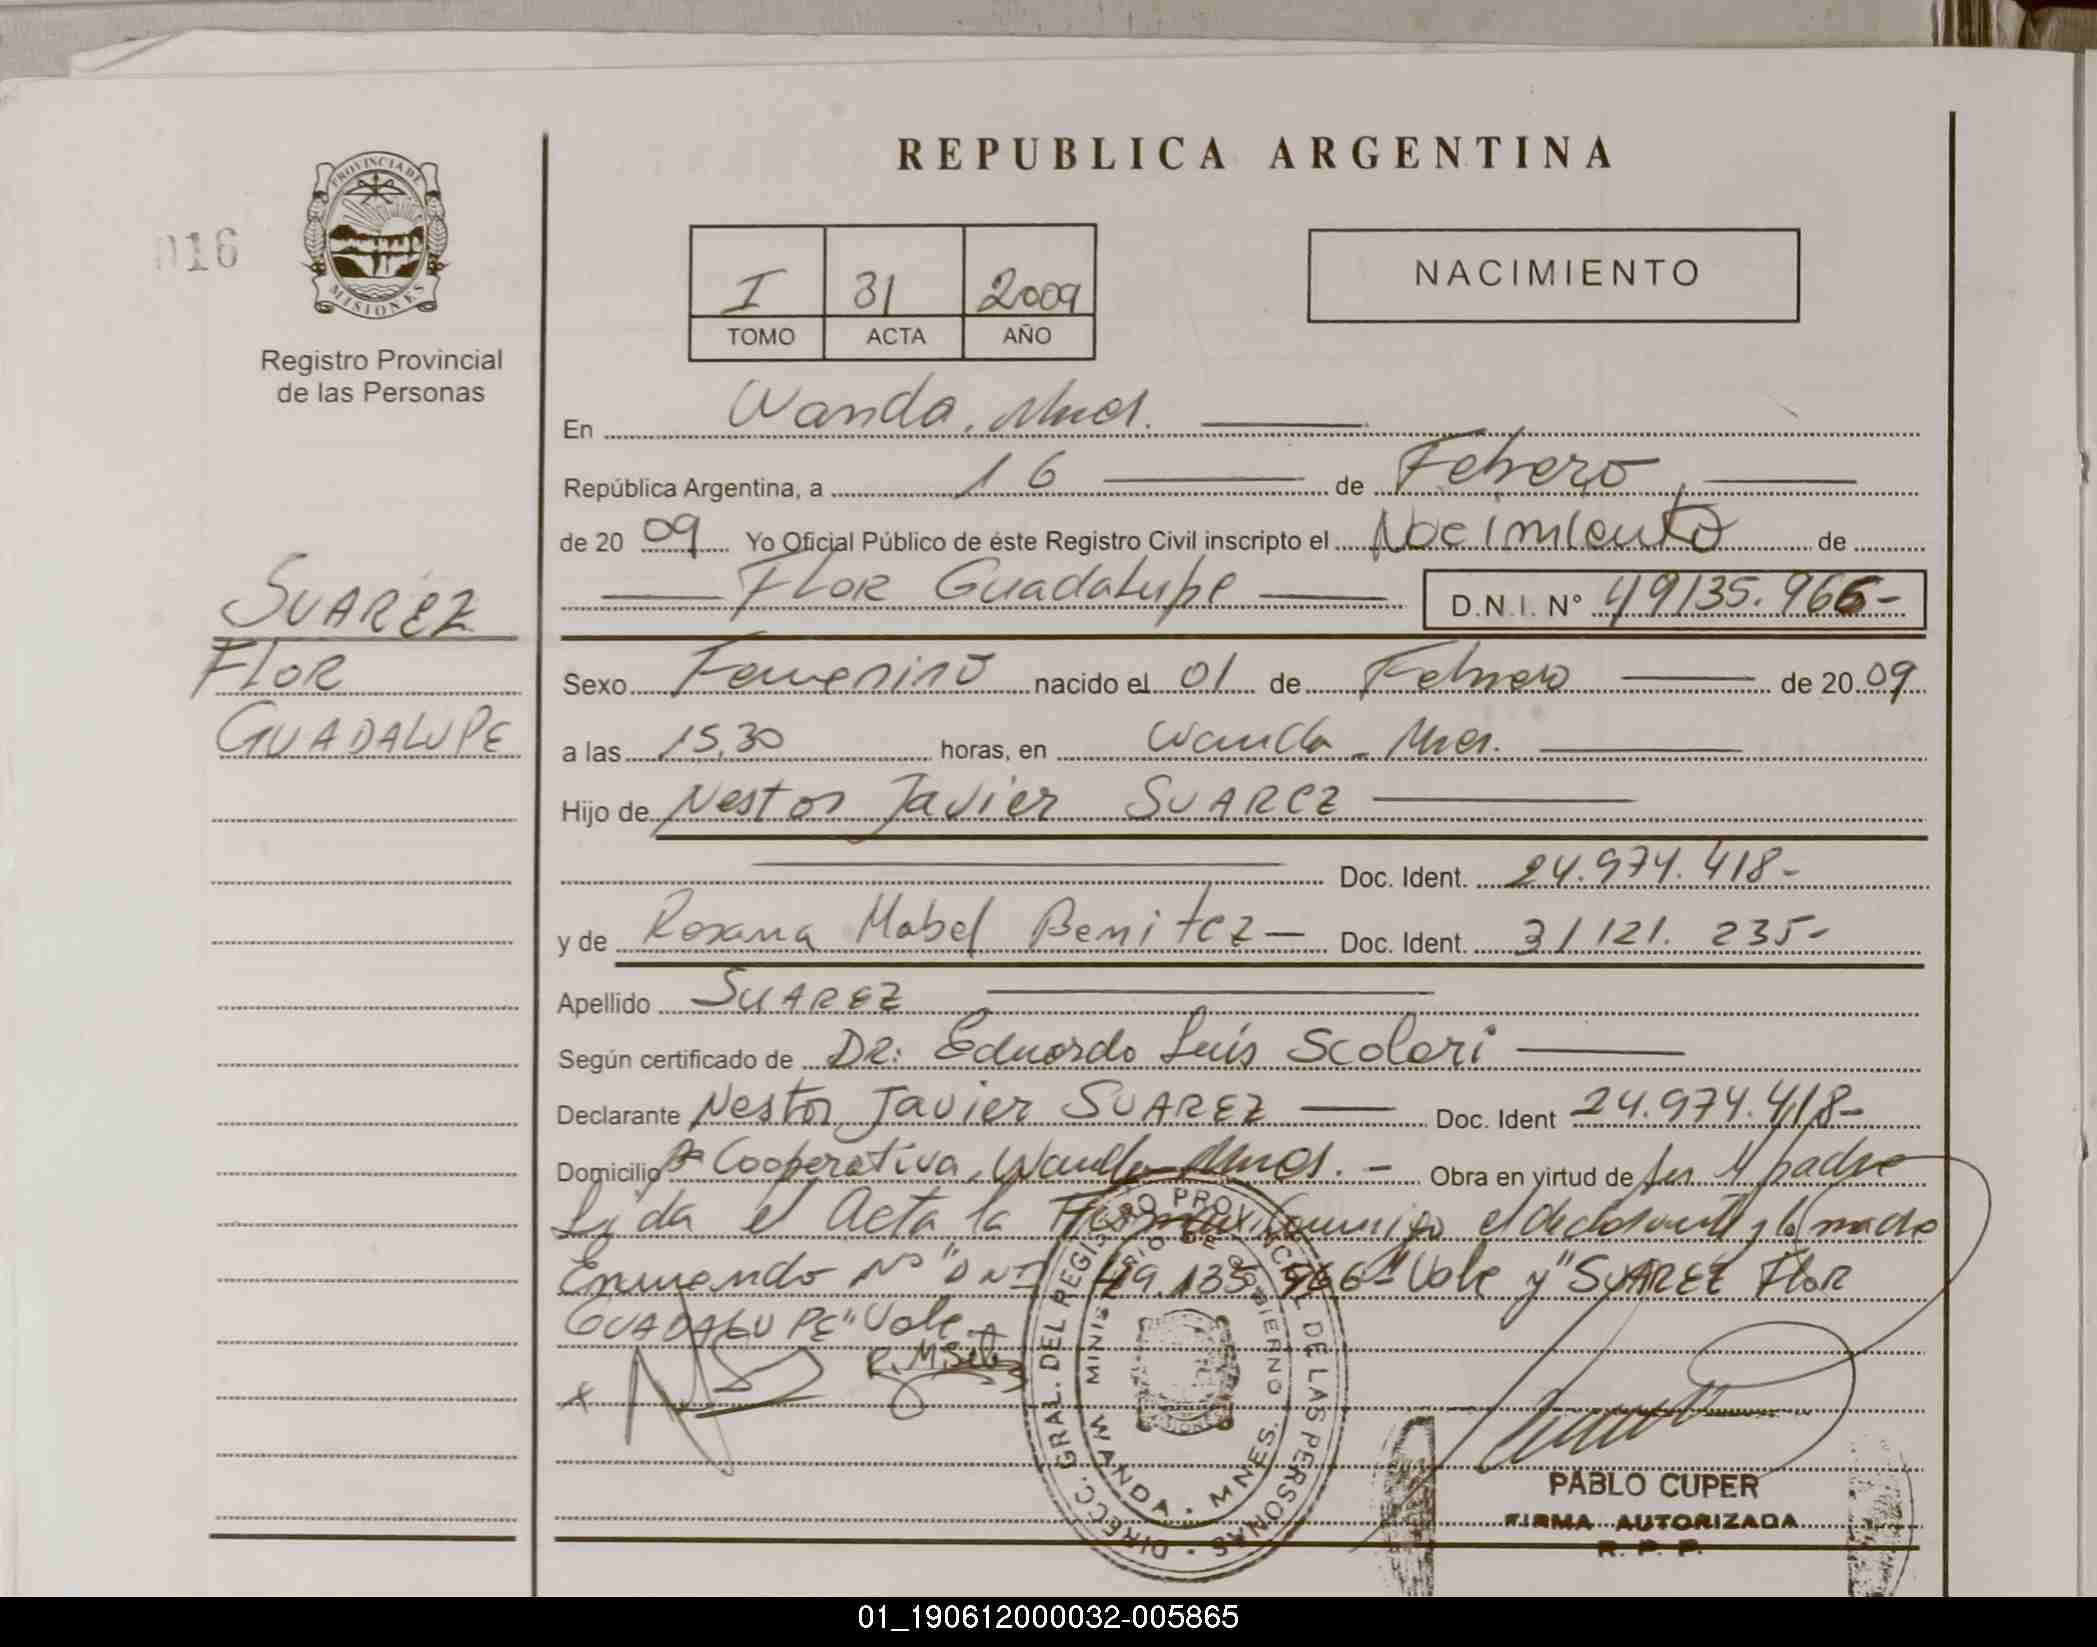 016
PROVINCIA DE
MISIONES
Registro Provincial
de las Personas
SUAREZ
FLOR
GUADALUPE
REPUBLICA ARGENTINA
I 31 2009
TOMO ACTA AÑO
NACIMIENTO
En Wanda, Mnes.
República Argentina, a 16 de Febrero
de 2009 Yo Oficial Público de éste Registro Civil inscripto el Nacimiento de
FLOR Guadalupe D.N.I. Nº 49135.966-
Sexo Femenino nacido el 01 de Febrero de 2009
a las 15,30 horas, en Wanda - Mnes.
Hijo de Nestor Javier SUAREZ
Doc. Ident. 24.974.418-
y de Roxana Mabel Benitez - Doc. Ident. 31121.235-
Apellido SUAREZ
Según certificado de DR: Eduardo Luis Scolari
Declarante Nestor Javier SUAREZ Doc. Ident 24.974.418-
Domicilio Bº Cooperativa, Wanda - Mnes. - Obra en virtud de ser padre
Leida el Acta la Firman conmigo el declarante y la madre
Enmendo Nº "DNI 49.135.966" Vale y "SUAREZ FLOR
GUADALUPE" Vale
DIRECC. GRAL. DEL REGISTRO PROVINCIAL DE LAS PERSONAS
MINISTERIO DE GOBIERNO
WANDA - MNES.
PABLO CUPER
FIRMA AUTORIZADA
R. P. P.
01_190612000032-005865